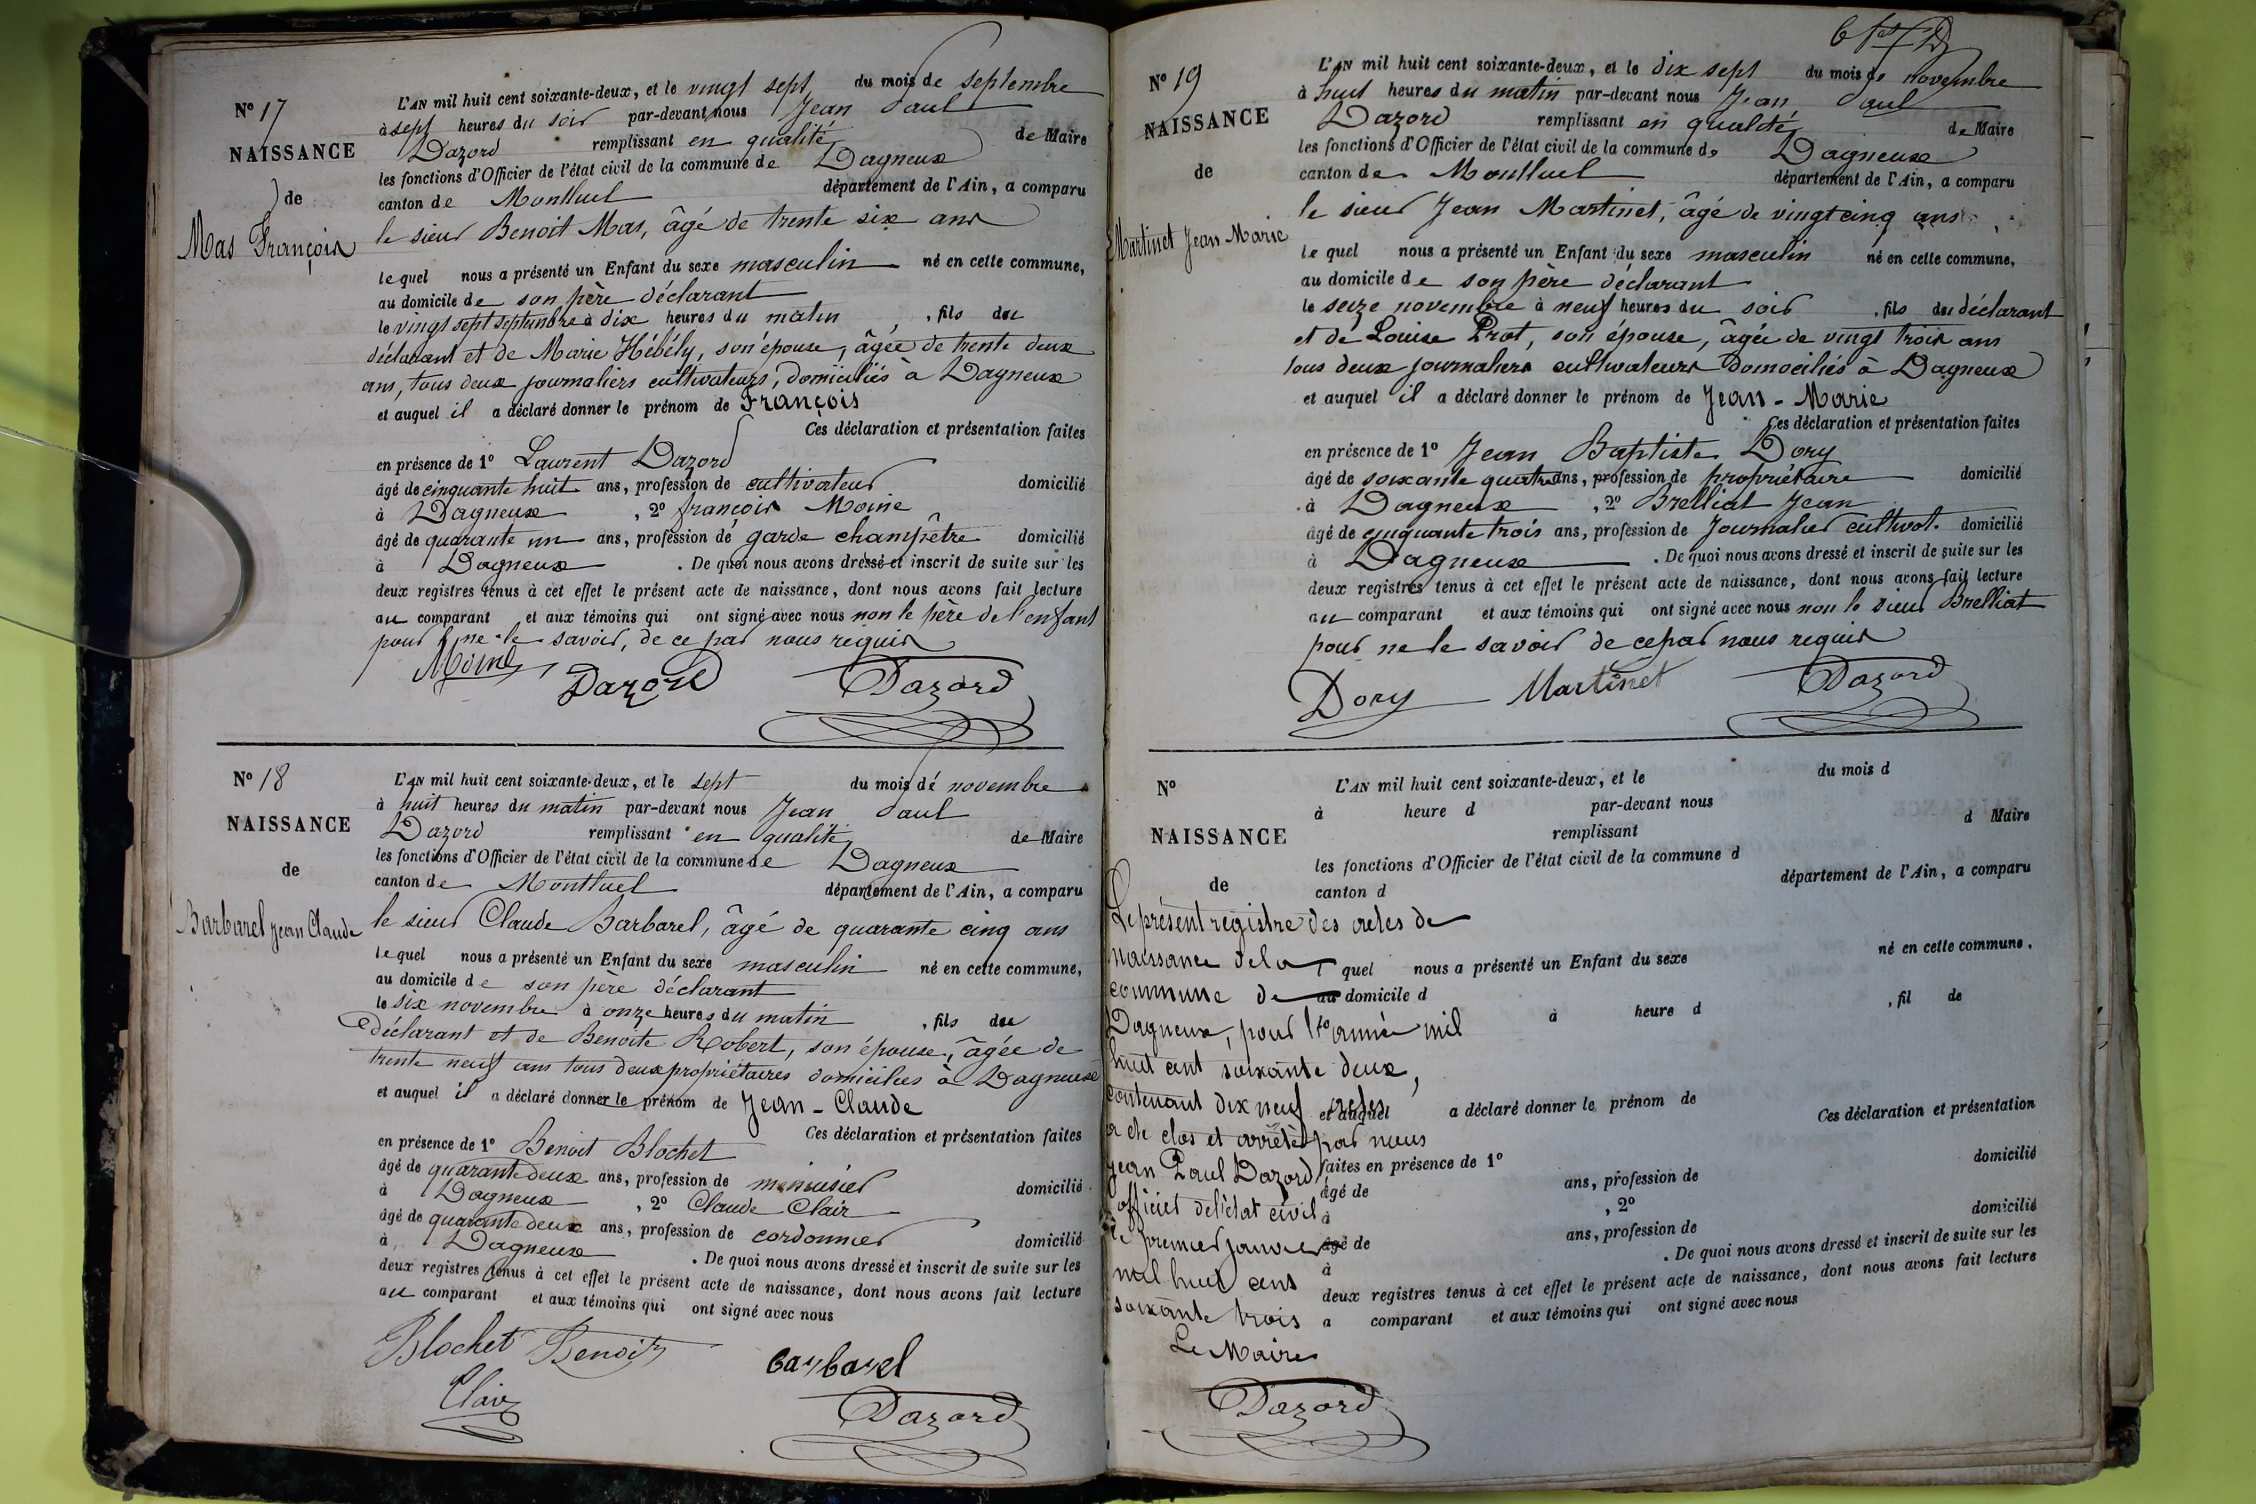 Nº 17
NAISSANCE
de
Mas François
L'AN mil huit cent soixante-deux, et le vingt sept du mois de septembre
à sept heures du soir par-devant nous Jean Paul
Dazord remplissant en qualité de Maire
les fonctions d'Officier de l'état civil de la commune de Dagneux
canton de Montluel département de l'Ain, a comparu
le sieur Benoit Mas, âgé de trente six ans
lequel nous a présenté un Enfant du sexe masculin né en cette commune,
au domicile de son père déclarant
le vingt sept septembre à dix heures du matin, fils du
déclarant et de Marie Hébély, son épouse, âgée de trente deux
ans, tous deux journaliers cultivateurs, domiciliés à Dagneux
et auquel il a déclaré donner le prénom de François
Ces déclaration et présentation faites
en présence de 1º Laurent Dazord
âgé de cinquante huit ans, profession de cultivateur domicilié
à Dagneux, 2º françois Moine
âgé de quarante un ans, profession de garde champêtre domicilié
à Dagneux. De quoi nous avons dressé et inscrit de suite sur les
deux registres tenus à cet effet le présent acte de naissance, dont nous avons fait lecture
au comparant et aux témoins qui ont signé avec nous non le père de l'enfant
pour ne le savoir, de ce par nous requis
Moine Dazord Dazord
Nº 18
NAISSANCE
de
Barbarel Jean Claude
L'AN mil huit cent soixante-deux, et le sept du mois de novembre
à huit heures du matin par-devant nous Jean Paul
Dazord remplissant en qualité de Maire
les fonctions d'Officier de l'état civil de la commune de Dagneux
canton de Montluel département de l'Ain, a comparu
le sieur Claude Barbarel, âgé de quarante cinq ans
lequel nous a présenté un Enfant du sexe masculin né en cette commune,
au domicile de son père déclarant
le six novembre à onze heures du matin, fils du
déclarant et de Benoite Robert, son épouse, âgée de
trente neuf ans tous deux propriétaires domiciliés à Dagneux
et auquel il a déclaré donner le prénom de Jean-Claude
Ces déclaration et présentation faites
en présence de 1º Benoit Blochet
âgé de quarante deux ans, profession de menuisier domicilié
à Dagneux, 2º Claude Clair
âgé de quarante deux ans, profession de cordonnier domicilié
à Dagneux. De quoi nous avons dressé et inscrit de suite sur les
deux registres tenus à cet effet le présent acte de naissance, dont nous avons fait lecture
au comparant et aux témoins qui ont signé avec nous
Blochet Benoit barbarel
Clair Dazord
Nº 19
NAISSANCE
de
Martinet Jean Marie
L'AN mil huit cent soixante-deux, et le dix sept du mois de novembre
à huit heures du matin par-devant nous Jean Paul
Dazord remplissant en qualité de Maire
les fonctions d'Officier de l'état civil de la commune de Dagneux
canton de Montluel département de l'Ain, a comparu
le sieur Jean Martinet, âgé de vingt cinq ans
le quel nous a présenté un Enfant du sexe masculin né en cette commune,
au domicile de son père déclarant
le seize novembre à neuf heures du soir, fils du déclarant
et de Louise Prot, son épouse, âgée de vingt trois ans
tous deux journaliers cultivateurs domociliés à Dagneux
et auquel il a déclaré donner le prénom de Jean-Marie
Ces déclaration et présentation faites
en présence de 1º Jean Baptiste Dory
âgé de soixante quatre ans, profession de propriétaire domicilié
à Dagneux, 2º Brelliat Jean
âgé de cinquante trois ans, profession de Journalier cultivat. domicilié
à Dagneux. De quoi nous avons dressé et inscrit de suite sur les
deux registres tenus à cet effet le présent acte de naissance, dont nous avons fait lecture
au comparant et aux témoins qui ont signé avec nous non le sieur Brelliat
pour ne le savoir de ce par nous requis
Dory Martinet Dazord
Nº
NAISSANCE
de
L'AN mil huit cent soixante-deux, et le du mois d
à heure d par-devant nous
remplissant d Maire
les fonctions d'Officier de l'état civil de la commune d
canton d département de l'Ain, a comparu
quel nous a présenté un Enfant du sexe né en cette commune,
au domicile d
à heure d, fil de
et auquel a déclaré donner le prénom de
Ces déclaration et présentation
faites en présence de 1º domicilié
âgé de ans, profession de
à, 2º domicilié
âgé de ans, profession de
à. De quoi nous avons dressé et inscrit de suite sur les
deux registres tenus à cet effet le présent acte de naissance, dont nous avons fait lecture
a comparant et aux témoins qui ont signé avec nous
Le présent registre des actes de
naissance de la
commune de
Dagneux, pour l'année mil
huit cent soixante deux,
contenant dix neuf actes
a été clos et arrêté par nous
Jean Paul Dazord
officier de l'état civil
le premier janvier
mil huit cent
soixante trois
Le Maire
Dazord